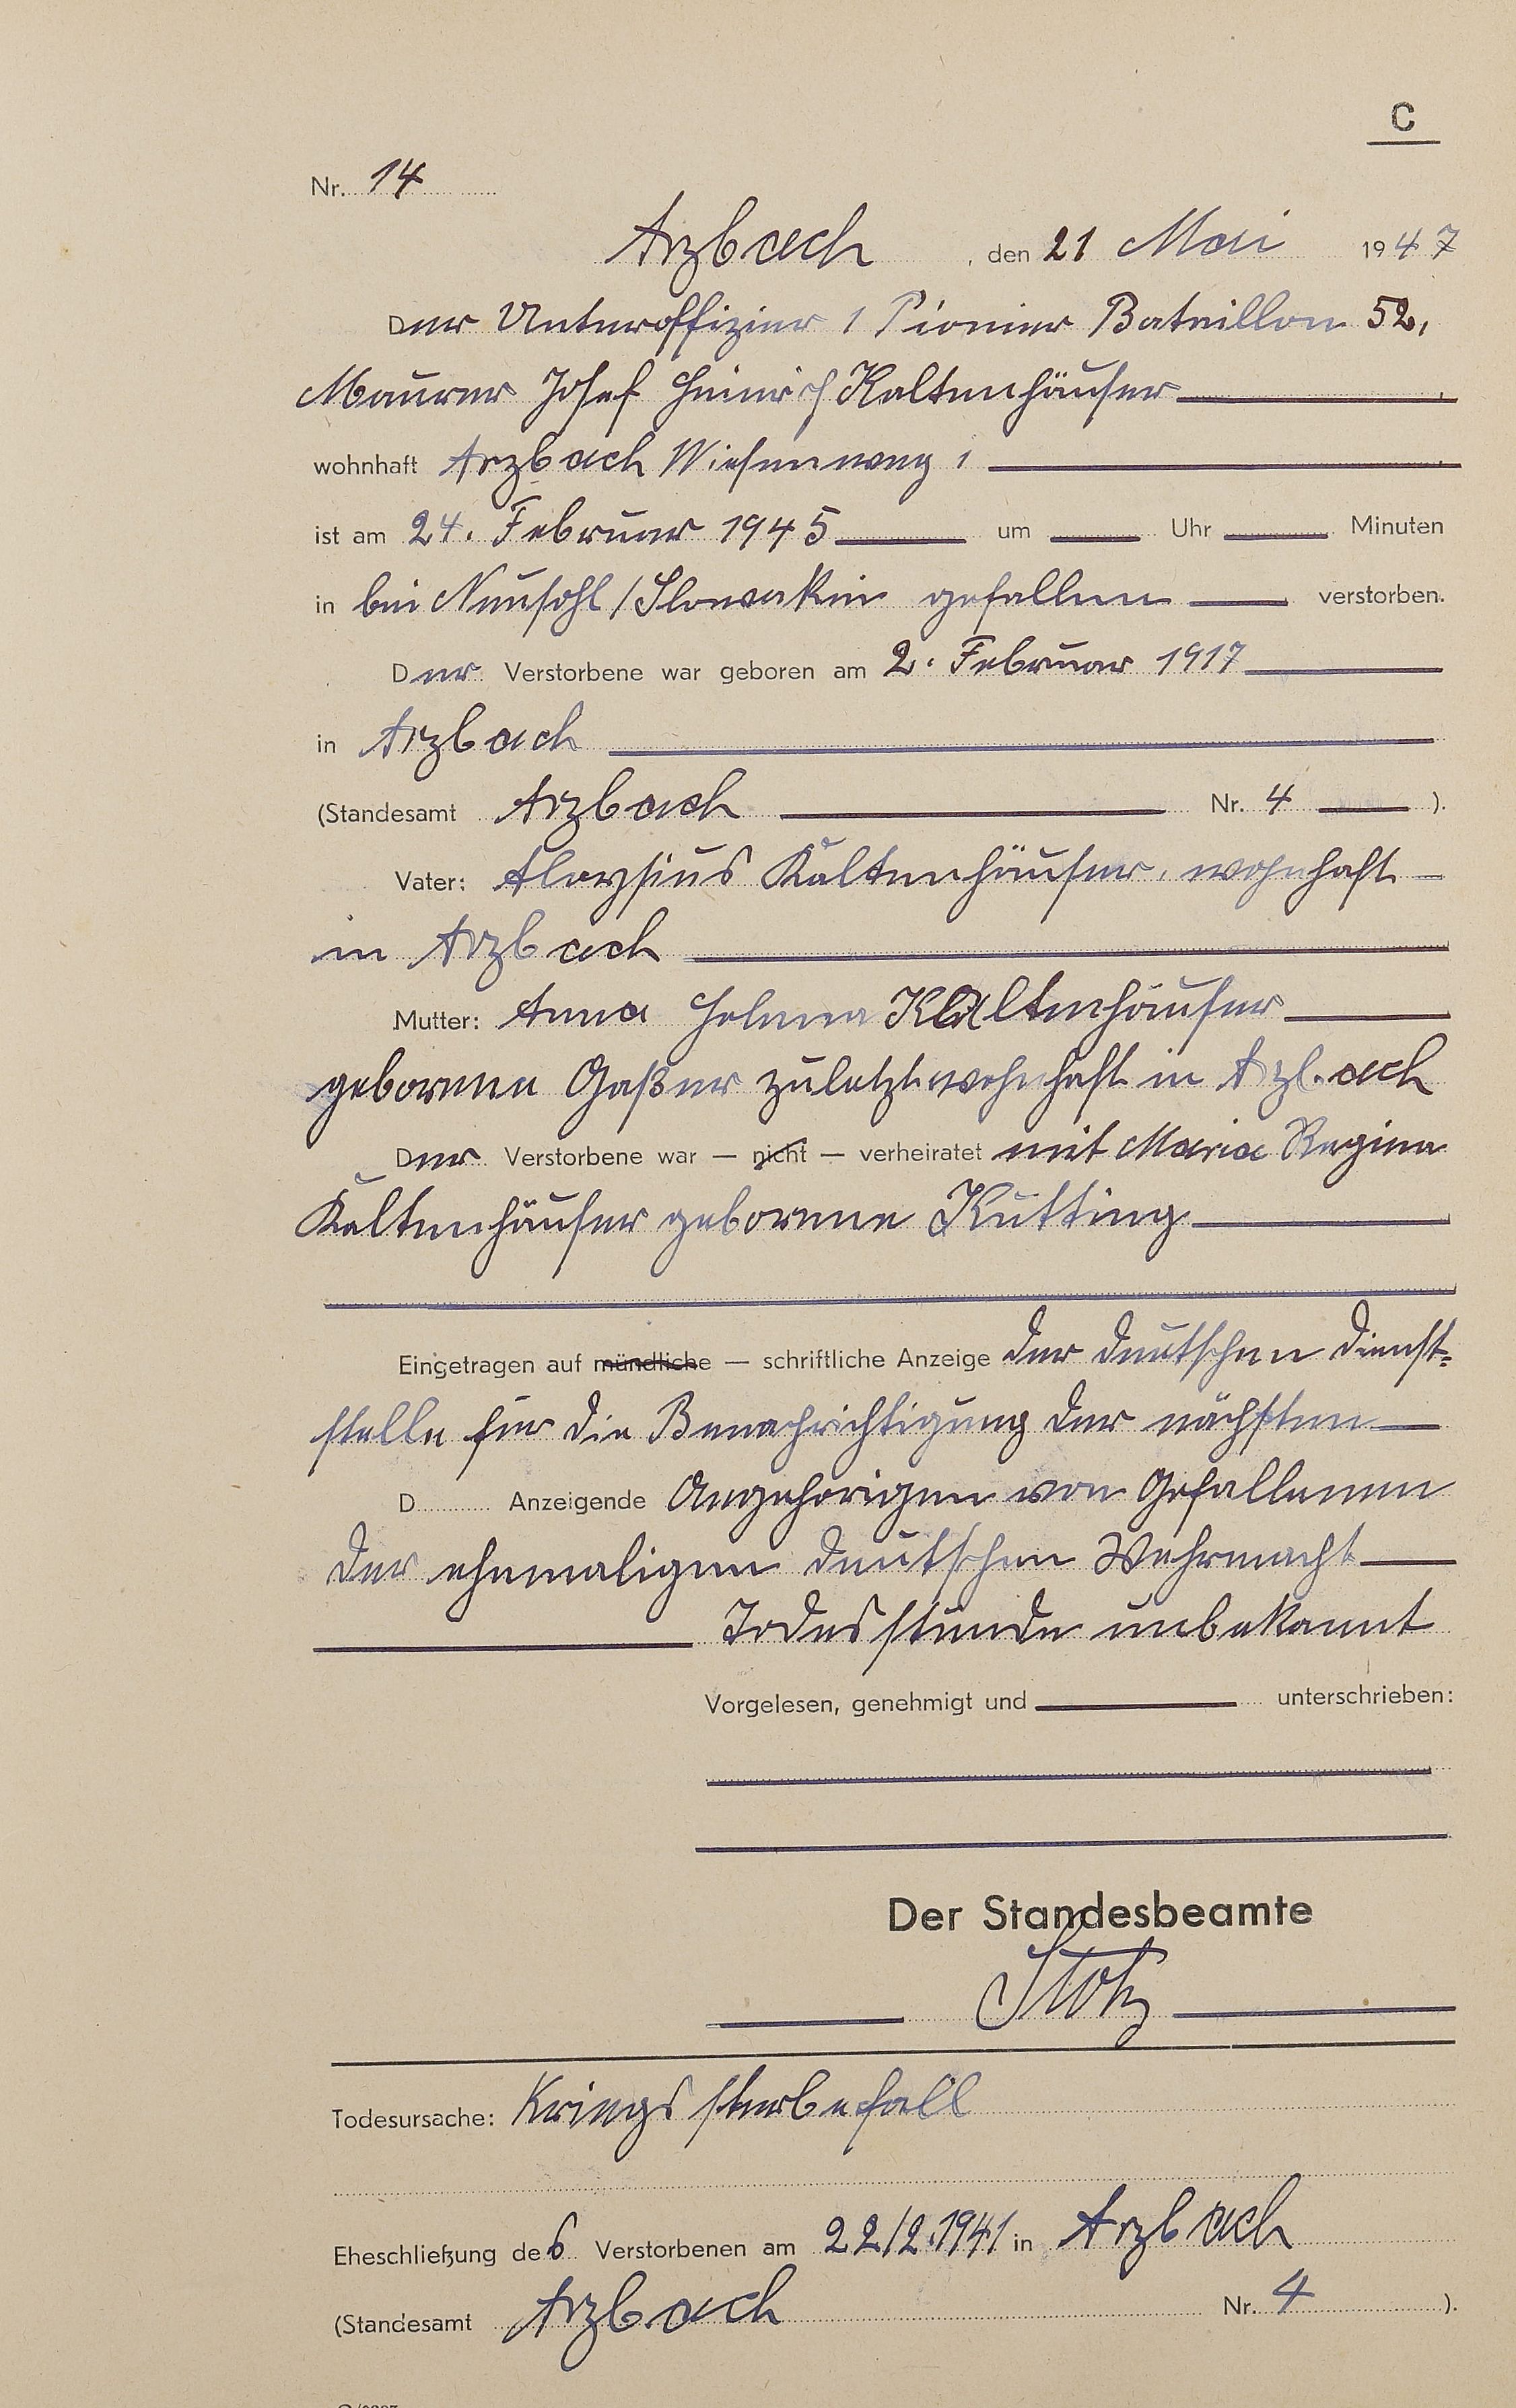 C
Nr. 14
Arzbach, den 21 Mai 1947
Der Unteroffizier / Pionier Bataillon 52,
Maurer Josef Heinrich Kaltenhäuser
wohnhaft Arzbach Wiesenweg 1
ist am 24. Februar 1945 um Uhr Minuten
in bei Neusohl / Slowakei gefallen verstorben.
Der Verstorbene war geboren am 2. Februar 1917
in Arzbach
(Standesamt Arzbach Nr. 4 ).
Vater: Aloysius Kaltenhäuser, wohnhaft
in Arzbach
Mutter: Anna Helena Kaltenhäuser
geborene Gaßner zuletzt wohnhaft in Arzbach
Der Verstorbene war — nicht — verheiratet mit Maria Regina
Kaltenhäuser geborene Kutting
Eingetragen auf mündliche — schriftliche Anzeige der deutschen Dienst-
stelle für die Benachrichtigung der nächsten
D Anzeigende Angehörigen von Gefallenen
der ehemaligen deutschen Wehrmacht
Todesstunde unbekannt
Vorgelesen, genehmigt und unterschrieben:
Der Standesbeamte
Stotz
Todesursache: Kriegssterbefall
Eheschließung des Verstorbenen am 22/2.1941 in Arzbach
(Standesamt Arzbach Nr. 4 ).